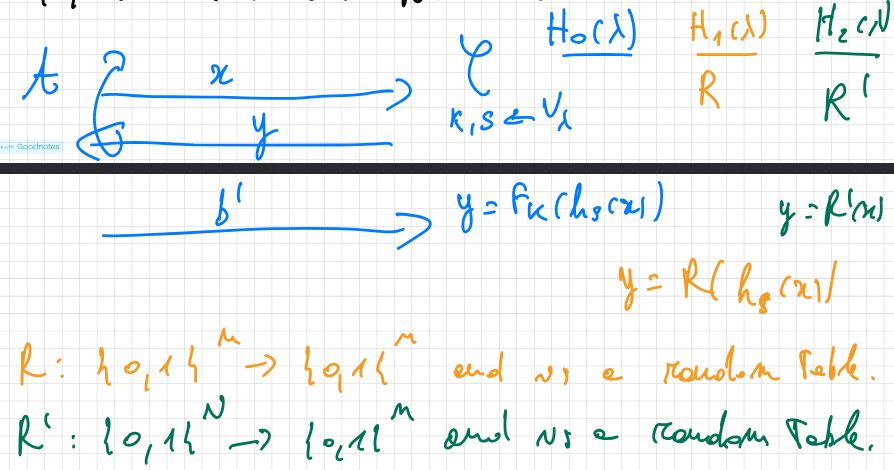 H₀(λ) H₁(λ) H₂(λ)
A x C R R'
y k, s ← U_λ
Goodnotes
b' y = F_K(h_s(x)) y = R'(x)
y = R(h_s(x))
R : {0,1}ⁿ → {0,1}ⁿ and is a random Table.
R' : {0,1}ᴺ → {0,1}ⁿ and is a random Table.